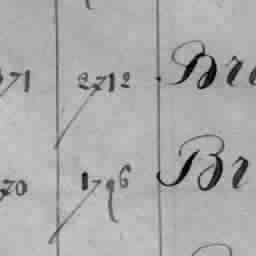 71 2712 Br
70 1796 Br